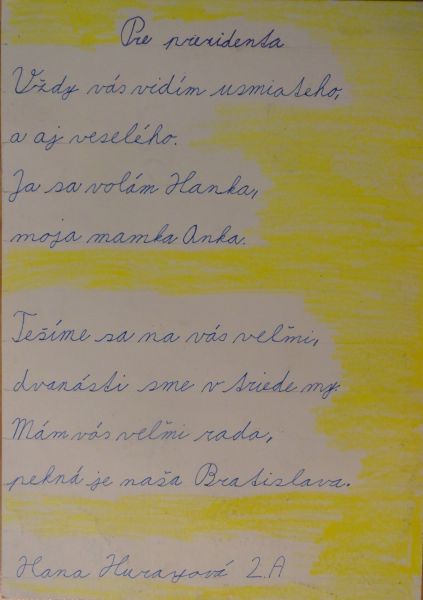 Pre prezidenta
Vždy vás vidím usmiateho,
a aj veselého.
Ja sa volám Hanka,
moja mamka Anka.
Tešíme sa na vás veľmi,
dvanásti sme v triede my.
Mám vás veľmi rada,
pekná je naša Bratislava.
Hana Huraxová 2.A